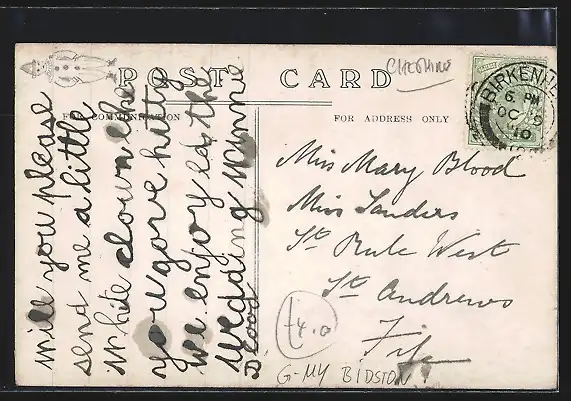 POST CARD
FOR COMMUNICATION
FOR ADDRESS ONLY
CHESHIRE
BIRKENHE
6. PM
OC 9
10
will you please
send me a little
white clown like
you gave hitty
we enjoyed the
wedding Winnie
Blood
Miss Mary Blood
Miss Sanders
St Rule West
St Andrews
Fife
£4.0
G-MY BIDSTON